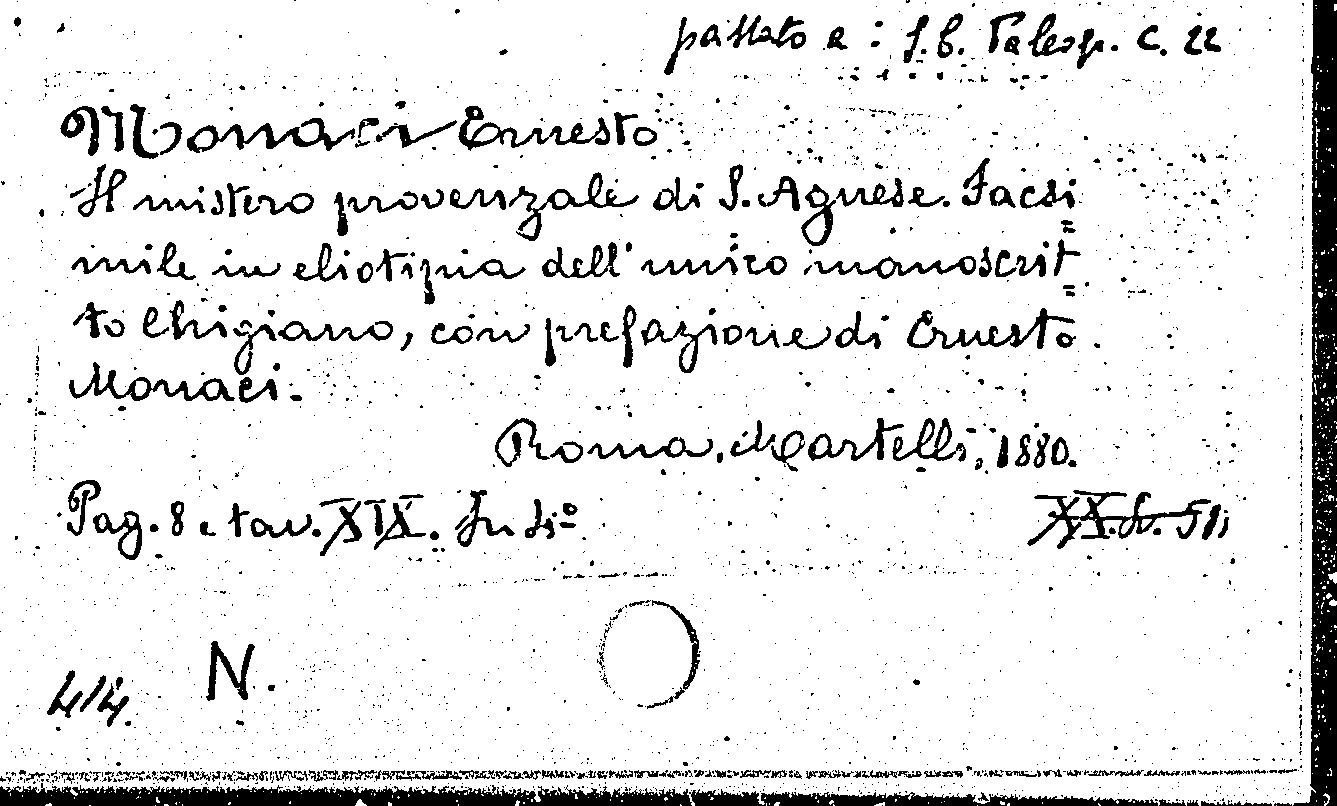 passato a : S.B. Palesp. C. 22
Monaci Ernesto
Il mistero provenzale di S. Agnese. Facsi=
mile in eliotipia dell'unico manoscrit=
to Chigiano, con prefazione di Ernesto
Monaci.
Roma, Martelli, 1880.
Pag. 8 e tav. XIX. In
XX.
N.